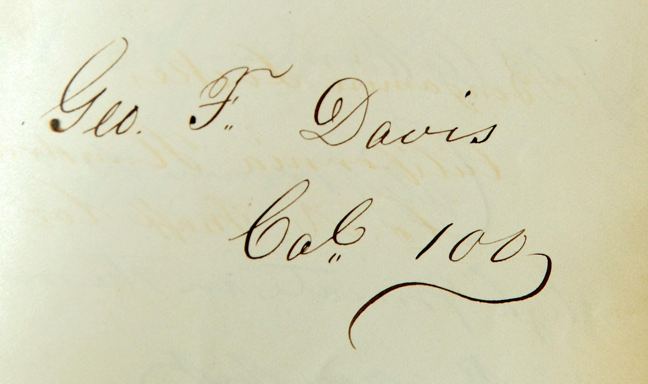 Geo. F. Davis
Cal 100